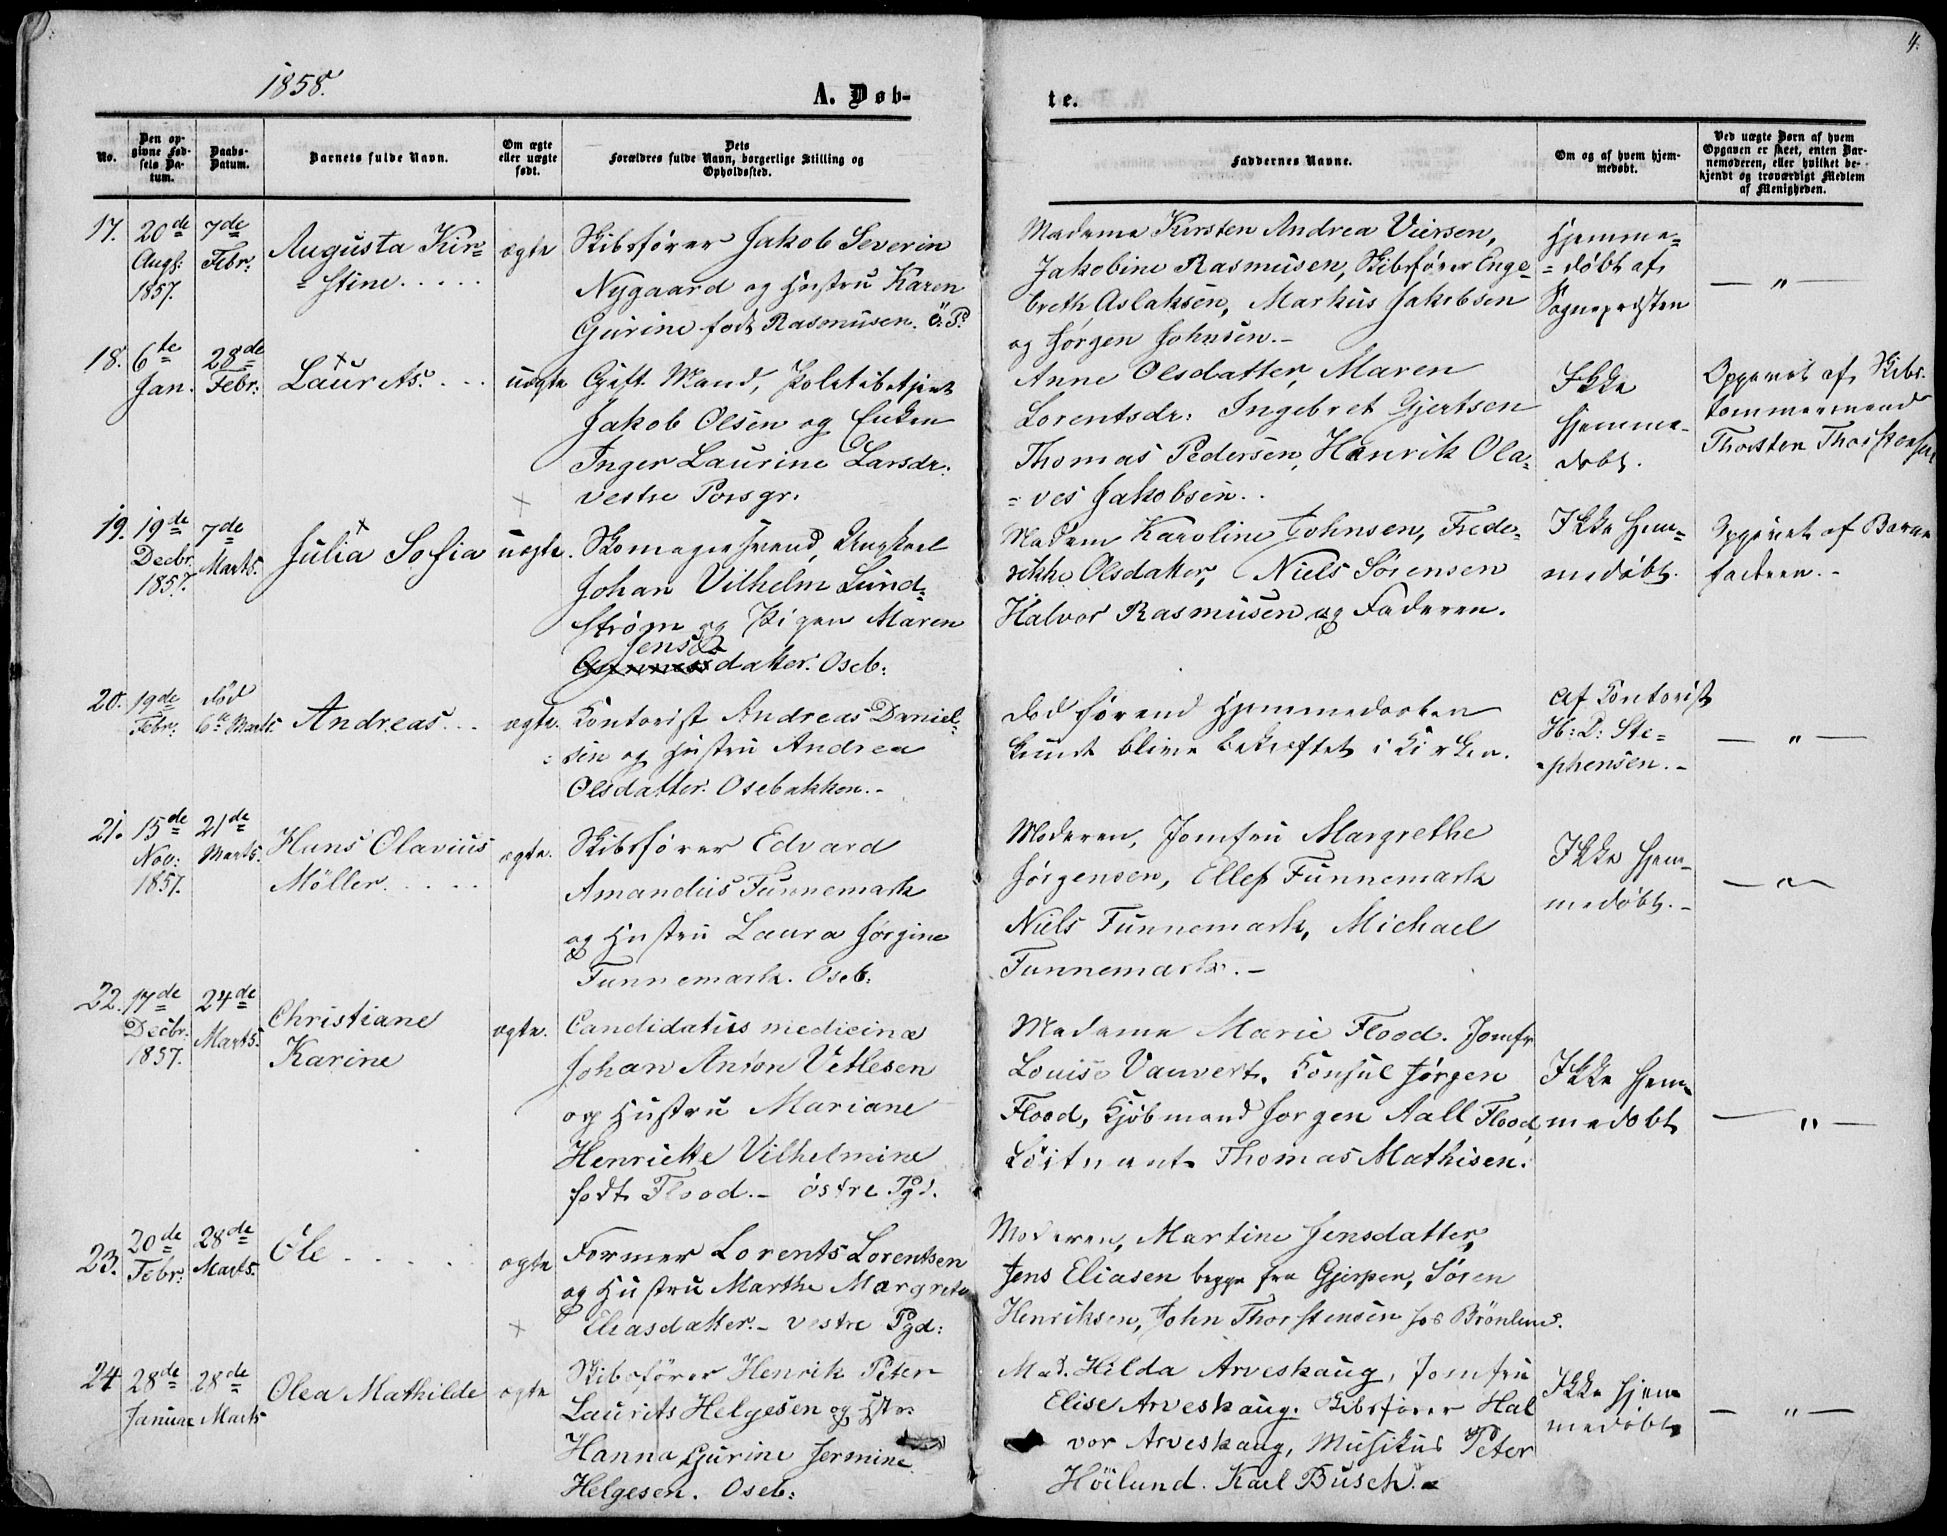 1858.
A. Døb-
te.
4.
No.
Den opgivne Fødsels Datum.
Daabs-Datum.
Barnets fulde Navn.
Om ægte eller uægte født.
Dets Forældres fulde Navn, borgerlige Stilling og Opholdssted.
Faddernes Navne.
Om og af hvem hjemmedøbt.
Ved uægte Børn af hvem Opgaven er skeet, enten Barnemoderen, eller hvilket bekjendt og troværdigt Medlem af Menigheden.
17.
20de
Augs:
1857.
7de
Febr:
Augusta Kir=
=stine.....
ægte
Skibsfører Jakob Severin
Nygaard og Hustru Karen
Gurine født Rasmusen. ö: P.
Madame Kirsten Andrea Viersen,
Jakobine Rasmusen, Skibsfører Enge=
breth Aslaksen, Markus Jakobsen
og Jørgen Johnsen.-
Hjemme=
=døbt af
Sognepresten
— " —
18.
6te
Jan.
28de
Febr:
Laurits. . . .
uægte
Gift Mand, Politibetjent
Jakob Olsen og Enken
Inger Laurine Larsdr:
vestre Porsgr:
Anne Olsdatter, Maren
Lorentsdr: Ingebret Gjertsen
Thomas Pedersen, Henrik Ola=
=ves Jakobsen..
Ikke
hjemme-
døbt.
Opgivet af Skibs-
tømmermand
Thorsten Thorstensen
19.
19de
Decbr.
1857.
7de
Marts.
Julia Sofia
uægte.
Skomagersvend, Ungkarl
Johan Vilhelm Lund=
strøm og Pigen Maren
Jens
datter. Oseb:
Madam Karoline Johnsen, Frede=
rikke Olsdatter, Niels Sørensen
Halvor Rasmusen og Faderen.
Ikke hjem=
medøbt.
Opgivet af Barne
faderen.-
20.
19de
Febr:
død
6te Marts.
Andreas...
ægte.
Kontorist Andreas Daniel=
=sen og Hustru Andrea
Olsdatter. Osebakken.-
død førend Hjemmedaaben
kunde blive bekræftet i Kirken.
af Kontorist
H: D: Ste=
=phensen.-
— " —
21.
15de
Nov:
1857.
21de
Marts.
Hans Olavius
Møller.....
ægte.
Skibsfører Edvard
Amandus Funnemark
og Hustru Laura Jørgine
Funnemark. Oseb:
Moderen, Jomfru Margrethe
Jørgensen, Ellef Funnemark
Niels Funnemark, Michael
Funnemark.-
Ikke hjem=
medøbt.-
— " —
22.
17de
Decbr:
1857.
24de
Marts.
Christiane
Karine
ægte.
Candidatus medicinæ
Johan Anton Vetlesen
og Hustru Mariane
Henriette Vilhelmine
født Flood.- östre Pgd.
Madame Marie Flood. Jomfr
Louise Vauvert. Konsul Jørgen
Flood, Kjøbmand Jørgen Aall Flood,
Löitnant Thomas Mathisen.
Ikke hjem=
medøbt
— " —
23.
20de
Febr:
28de
Marts.
Ole . . . . .
ægte
Former Lorents Lorentsen
og Hustru Marthe Margrete
Eliasdatter.- vestre Pgd:
Moderen, Martine Jensdatter,
Jens Eliasen begge fra Gjerpen, Søren
Henriksen, John Thorstensen hos Brönlund.
24
28de
Januar
28de
Marts
Olea Mathilde
ægte
Skibsfører Henrik Peter
Laurits Helgesen og Hstr:
Hanna Gurine Hermine
Helgesen. Oseb:
Mad. Hilda Arveskaug, Jomfru
Elise Arveskaug. Skibsfører Hal
vor Arveskaug, Musikus Peter
Höilund. Karl Busch.-
Ikke hjem
medøbt
— " —